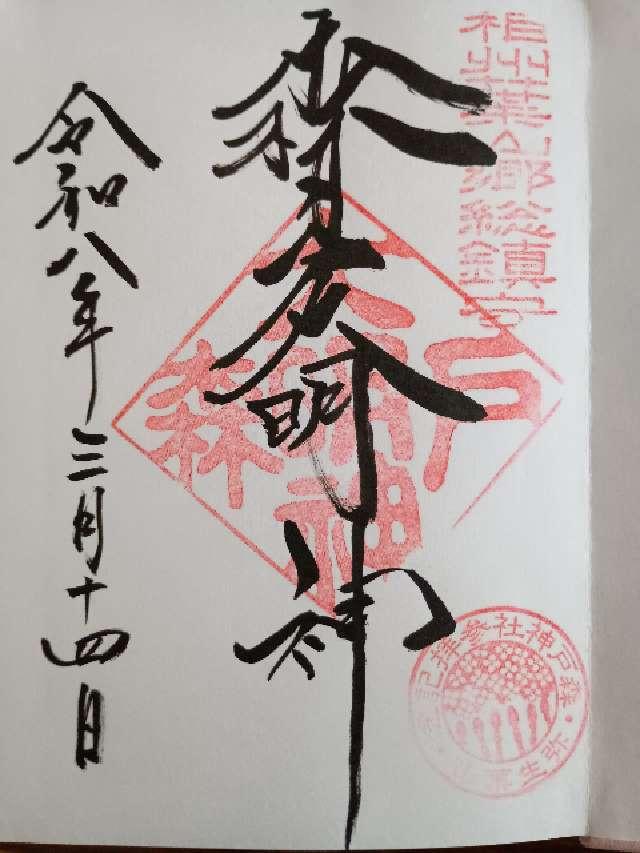 相州葉山郷総鎮守
森戸大明神
森戸大明神
令和八年三月十四日
森戸神社参拝記念
弥生